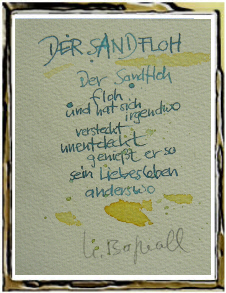 DER SANDFLOH
Der Sandfloh
floh
und hat sich
irgendwo
versteckt
unentdeckt
genießt er so
sein Liebesleben
anderswo